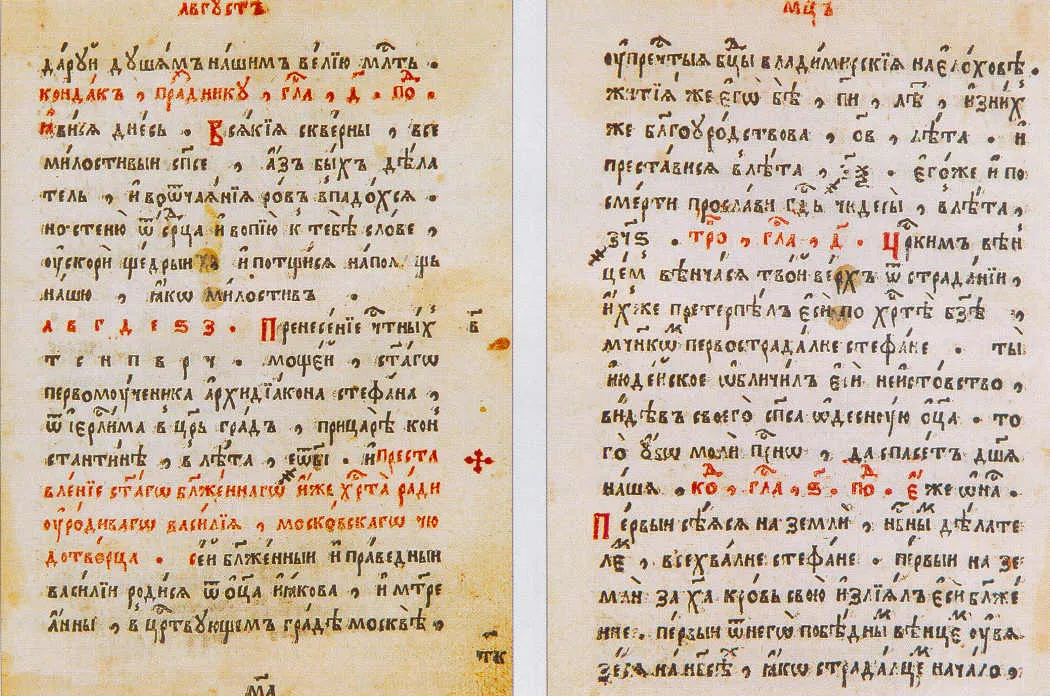 АВГꙋСТЪ
да́рꙋй дꙋша́мъ на́шимъ ве́лїю мл҃ть .
конда́къ , пра́днику , гла̑ , д҃ . по̑ .
ꙗ҆ви́сѧ дне́сь . Всѧ́кїѧ скве́рны , все
ми́лостивыи сп҃се , а҆́зъ бы́хъ дѣ́ла
тель , и҆ во ѿча́ѧ́нїѧ ро́въ впадо́хсѧ .
но стеню̀ ѿ се́рⷣца и҆ вопїю̀ к̾ тебѣ̀ сло́ве ,
оу҆скорѝ ще́дрыи и҆ потщи́сѧ
на́шю , ꙗ҆́кѡ ми́лостивъ .
а в г д е ѕ з . Пренесе́нїе чⷭ҇тны́хъ
т с и п в р ч . моще́й , ст҃а́гѡ
первомоу́ченика а҆рхидїа́кона стефа́на ,
ѿ і҆ерⷭ҇ли́ма в цр҃ь гра́дъ , при ца́рѣ кон
стантинѣ̀ , в лѣ́та , еѡ҃ві . и҆ преста
вле́нїе ст҃а́гѡ бл҃же́ннагѡ и҆́же хрⷭ҇та̀ ра́ди
оу҆ро́дивагѡ васи́лїѧ , моско́вскагѡ чю
дотво́рца . се́и бл҃же́нныи и҆ пра́ведныи
васи́лїи роди́сѧ ѿ о҆ц҃а̀ и҆ꙗ́кова , и҆ мт҃ре
а҆́нны , в црⷭ҇твꙋющемъ гра́дѣ москвѣ̀ ,
б҃
м҃а
мцⷭ҇ъ
оу҆ пречⷭ҇тыѧ бцⷣы влади́мирскїѧ на є҆ло́ховѣ .
житїѧ̀ же є҆гѡ̀ бѣ̀ , пи , лѣ̑ , и҆з ни́хъ
же бл҃гоурⷪ҇дствова , ов , лѣ́та . и҆
преста́висѧ в лѣ́та , ҂зѯ . є҆го́же и҆ по
сме́рти просла́ви гдⷭ҇ь чюдесы̀ , в лѣ́та ,
зч҃ѕ . тро̑ , гла̑ , д҃ . Црⷭ҇кимъ вѣн
це́м вѣнча́сѧ тво́й ве́рхъ ѿ страда́нїи ,
и҆́хже претерпѣ́лъ є҆сѝ по хрⷭ҇тѣ̀ бз҃ѣ ,
мч҃нкѡⷨ первострада́лне стефа́не . ты̀
и҆юде́йское ѡ҆бличи́лъ є҆сѝ неи́стовство ,
ви́дѣвъ своего̀ сп҃са ѡ҆десную о҆ц҃а . то
го̀ оу҆́бѡ молѝ при́сⷭ҇нѡ , да спасе́тъ дш҃а
на́шѧ . коⷣ , гла̑ , ѕ҃ . поⷣ . Е҆́же ѡ҆ на́ .
Пе́рвыи сѣ́ѧсѧ на землѝ , нбⷭ҇ныⷨ дѣла́те
леⷨ , всехва́лне стефа́не . пе́рвыи на зе
млѝ за хⷭ҇а кро́вь свою̀ и҆злїѧ́лъ є҆сѝ бл҃же́
нне . пе́рвыи ѿ негѡ̀ побѣ́дныⷨ вѣнце́ⷨ оу҆вѧ
зе́сѧ на нбⷭ҇сѣ́хъ , ꙗ҆́кѡ страда́лцеⷨ нача́ло ,